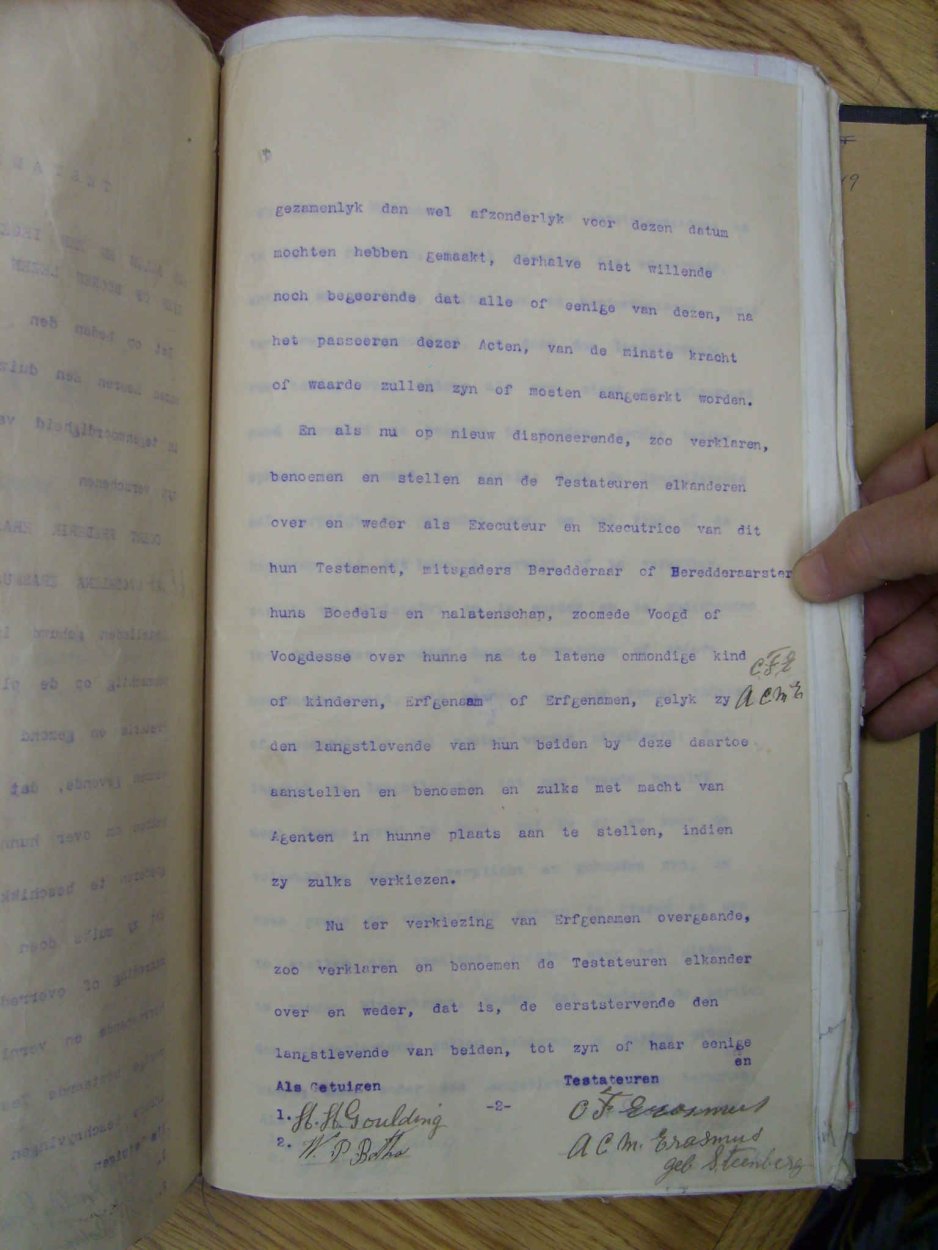 gezamenlyk dan wel afzonderlyk voor dezen datum
mochten hebben gemaakt, derhalve niet willende
noch begeerende dat alle of eenige van dezen, na
het passeeren dezer Acten, van de minste kracht
of waarde zullen zyn of moeten aangemerkt worden.
En als nu op nieuw disponeerende, zoo verklaren,
benoemen en stellen aan de Testateuren elkanderen
over en weder als Executeur en Executrice van dit
hun Testament, mitsgaders Beredderaar of Beredderaarster
huns Boedels en nalatenschap, zoomede Voogd of
Voogdesse over hunne na te latene onmondige kind
C.F.E
of kinderen, Erfgenaam of Erfgenamen, gelyk zy
A C M E
den langstlevende van hun beiden by deze daartoe
aanstellen en benoemen en zulks met macht van
Agenten in hunne plaats aan te stellen, indien
zy zulks verkiezen.
Nu ter verkiezing van Erfgenamen overgaande,
zoo verklaren en benoemen de Testateuren elkander
over en weder, dat is, de eerststervende den
langstlevende van beiden, tot zyn of haar eenige
en
Als Getuigen Testateuren
1. H. H. Goulding -2- C F Erasmus
2. W P Botha A C M. Erasmus
geb Steenberg
19